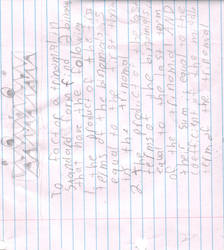 To factor a trinomial in
standard form find 2 binomials
that have the following
1 the product of the first
terms of the binomials is
equal to the first
of the trinomial
2 The product of the last
terms of the binomials
equal to the last term
of the trinomial AND
their sum is the
term of the trinomial